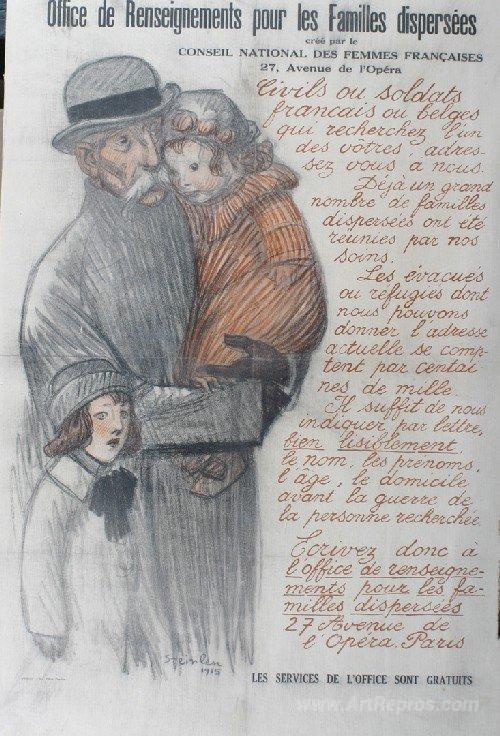 Office de Renseignements pour les Familles dispersées
créé par le
CONSEIL NATIONAL DES FEMMES FRANÇAISES
27, Avenue de l'Opéra
Civils ou soldats
français ou belges
qui recherchez l'un
des vôtres, adres-
sez vous à nous.
Déjà un grand
nombre de familles
dispersées ont été
réunies par nos
soins.
Les évacués
ou réfugiés dont
nous pouvons
donner l'adresse
actuelle se comp-
tent par centai
nes de mille.
Il suffit de nous
indiquer par lettre,
bien lisiblement,
le nom, les prénoms,
l'âge, le domicile
avant la guerre de
la personne recherchée.
Écrivez donc à
l'office de renseigne-
ments pour les fa-
milles dispersées
27 Avenue de
l'Opéra. Paris
Steinlen
1915
LES SERVICES DE L'OFFICE SONT GRATUITS
www.ArtRepros.com